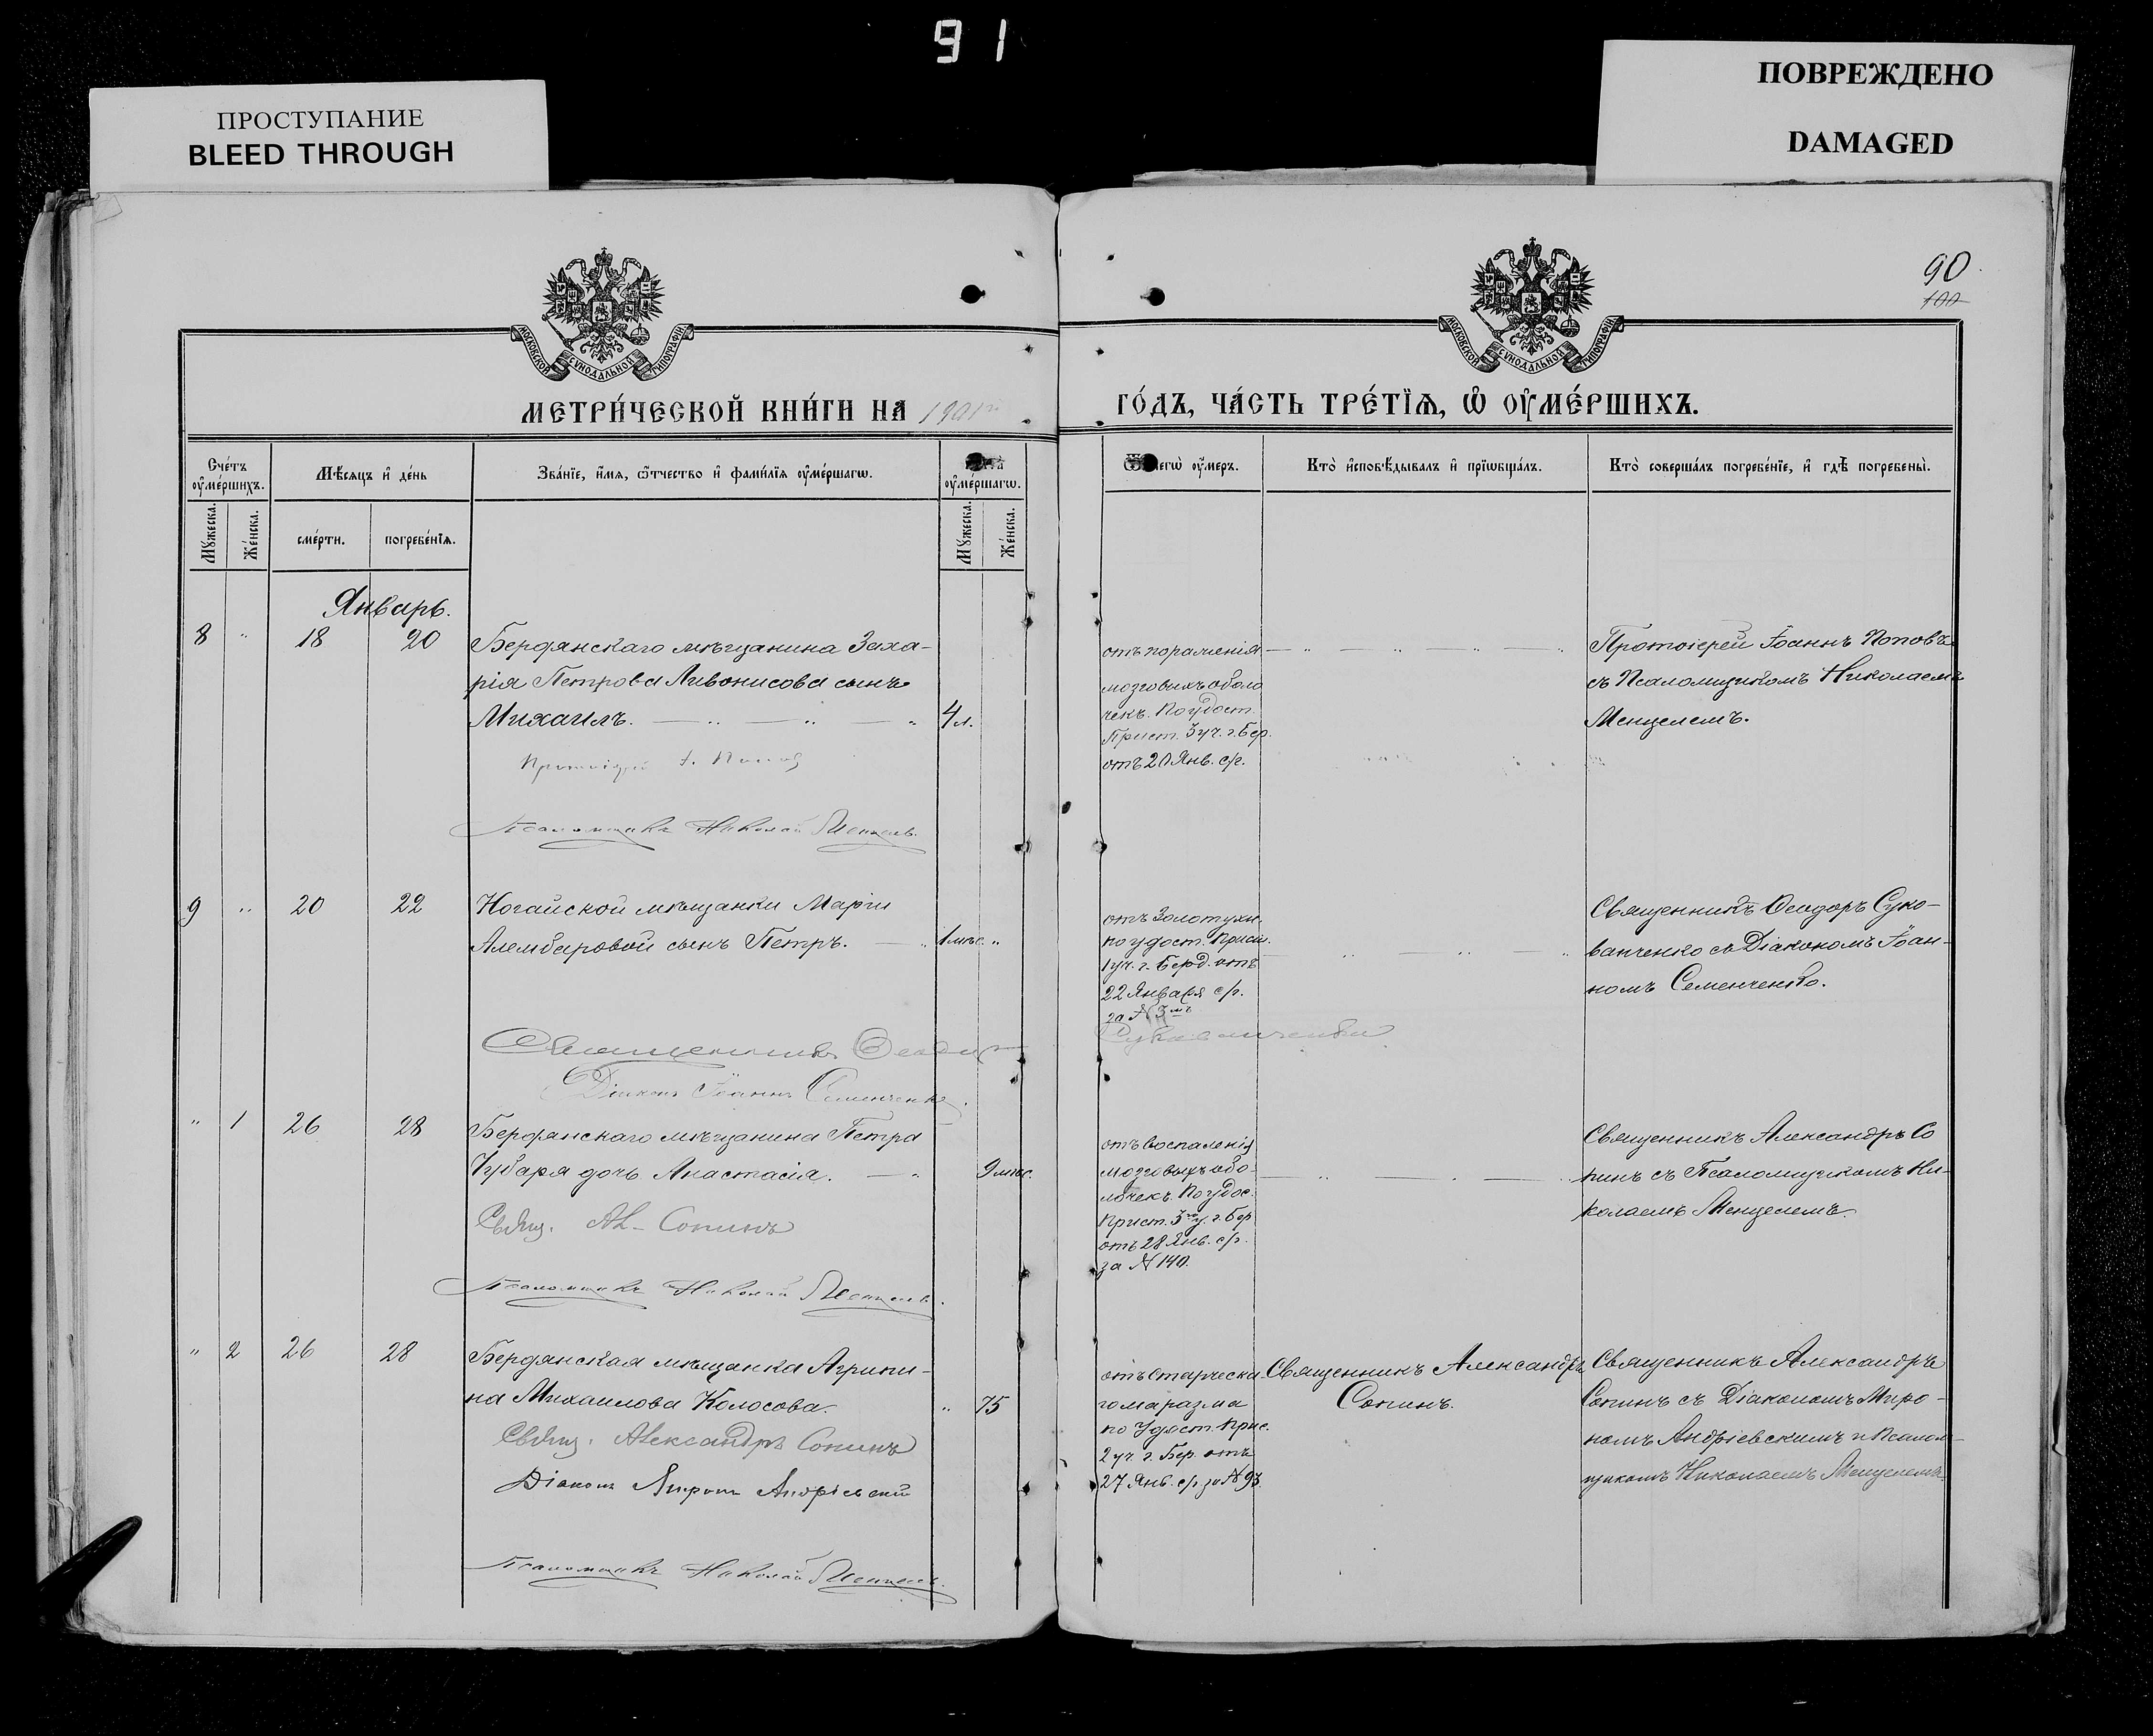 91
ПРОСТУПАНИЕ
BLEED THROUGH
ПОВРЕЖДЕНО
DAMAGED
90
100
МОСКОВСКОЙ СѴНОДАЛЬНОЙ ТИПОГРАФІИ
МОСКОВСКОЙ СѴНОДАЛЬНОЙ ТИПОГРАФІИ
МЕТРИ́ЧЕСКОЙ КНИ́ГИ НА 1901
ГО́ДЪ, ЧА́СТЬ ТРЕ́ТЇѦ, Ѽ ОУ҆МЕ́РШИХЪ.
Сче́тъ оу҆ме́ршихъ.
Мѣ́сяцъ и҆ де́нь
Зва́нїе, и҆́мѧ, ѻ҆́тчество и҆ фами́лїѧ оу҆ме́ршагѡ.
оу҆ме́ршагѡ.
оу҆́меръ.
Кто̀ и҆сповѣ́дывалъ и҆ прїѡбща́лъ.
Кто̀ соверша́лъ погребе́нїе, и҆ гдѣ̀ погребены̀.
Мꙋ́жеска.
Же́нска.
сме́рти.
погребе́нїѧ.
Мꙋ́жеска.
Же́нска.
Январь.
8 " 18 20 Бердянскаго мѣщанина Заха-
рія Петрова Ливонисова сынъ
Михаилъ. 4 л.
Протоіерей І. Попов
Псаломщикъ Николай Менцель.
отъ пораженія
мозговыхъ оболо
чекъ. По удост.
Прист. 3 уч. г. Бер.
отъ 20 Янв. с/г.
Протоіерей Іоаннъ Поповъ
съ Псаломщикомъ Николаемъ
Менцелемъ.
9 " 20 22 Ногайской мѣщанки Маріи
Алембаровой сынъ Петръ. 1 мѣс. "
Священникъ Ѳеодоръ Сукованченко
Діаконъ Іоаннъ Семенченко.
отъ Золотухи.
по удост. Прист.
1 уч. г. Берд. отъ
22 Января с/г.
за № 3
Священникъ Ѳеодоръ Суко-
ванченко съ Діакономъ Іоан-
номъ Семенченко.
" 1 26 28 Бердянскаго мѣщанина Петра
Чубаря дочь Анастасія. 9 мѣс.
Свящ. Ал. Сопинъ
Псаломщикъ Николай Менцель.
отъ воспаленія
мозговыхъ обо-
лочекъ. По удос.
Прист. 3 у. г. Бер
отъ 28 Янв. с/г.
за № 140.
Священникъ Александръ Со
пинъ съ Псаломщикомъ Ни-
колаемъ Менцелемъ.
" 2 26 28 Бердянская мѣщанка Агрипи-
на Михаилова Колосова. " 75
Свящ. Александръ Сопинъ
Діаконъ Миронъ Андріевскій
Псаломщикъ Николай Менцель.
отъ старчески
го маразма
по удост. Прис.
2 уч. г. Бер. отъ
27 Янв. с/г. за № 93.
Священникъ Александръ
Сопинъ.
Священникъ Александръ
Сопинъ съ Діакономъ Миро-
номъ Андріевскимъ и Псалом-
щикомъ Николаемъ Менцелемъ.